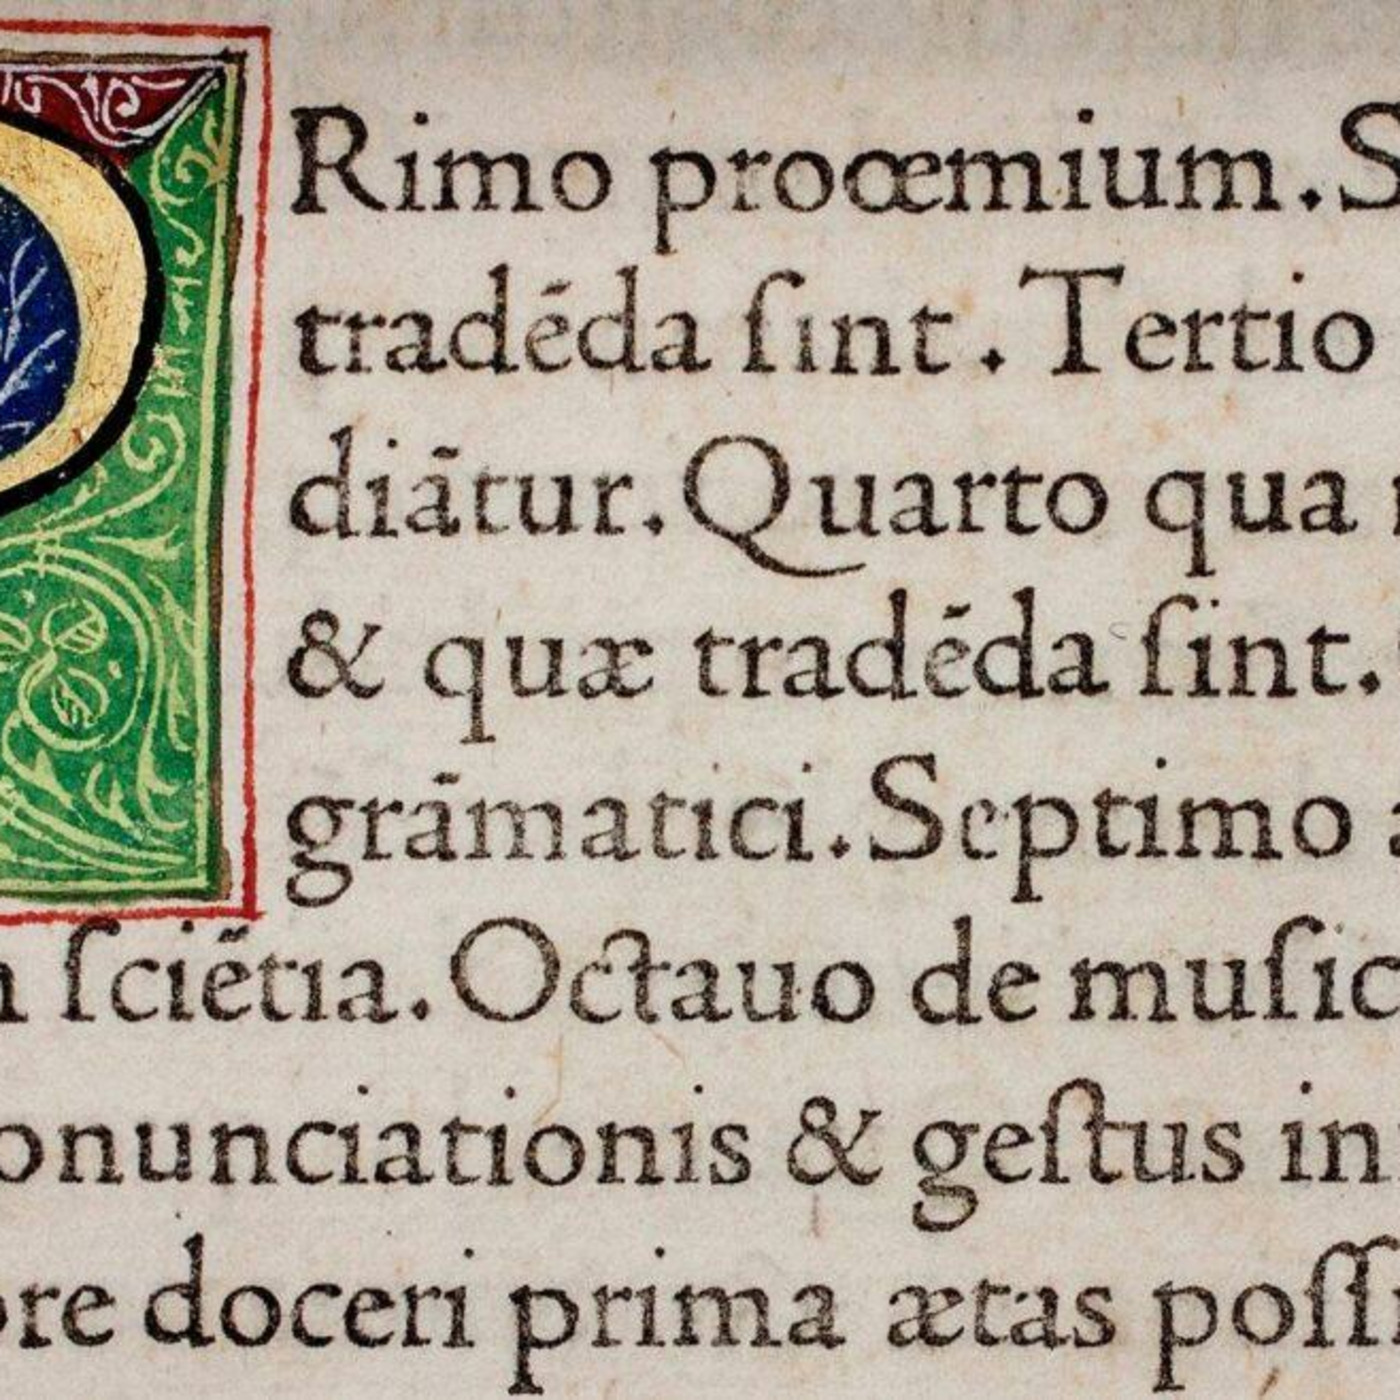 PRimo proœmium. S
tradēda ſint. Tertio
diātur. Quarto qua
& quæ tradēda ſint.
grāmatici. Septimo
ſciētia. Octauo de muſic
onunciationis & geſtus in
ore doceri prima ætas poſſ